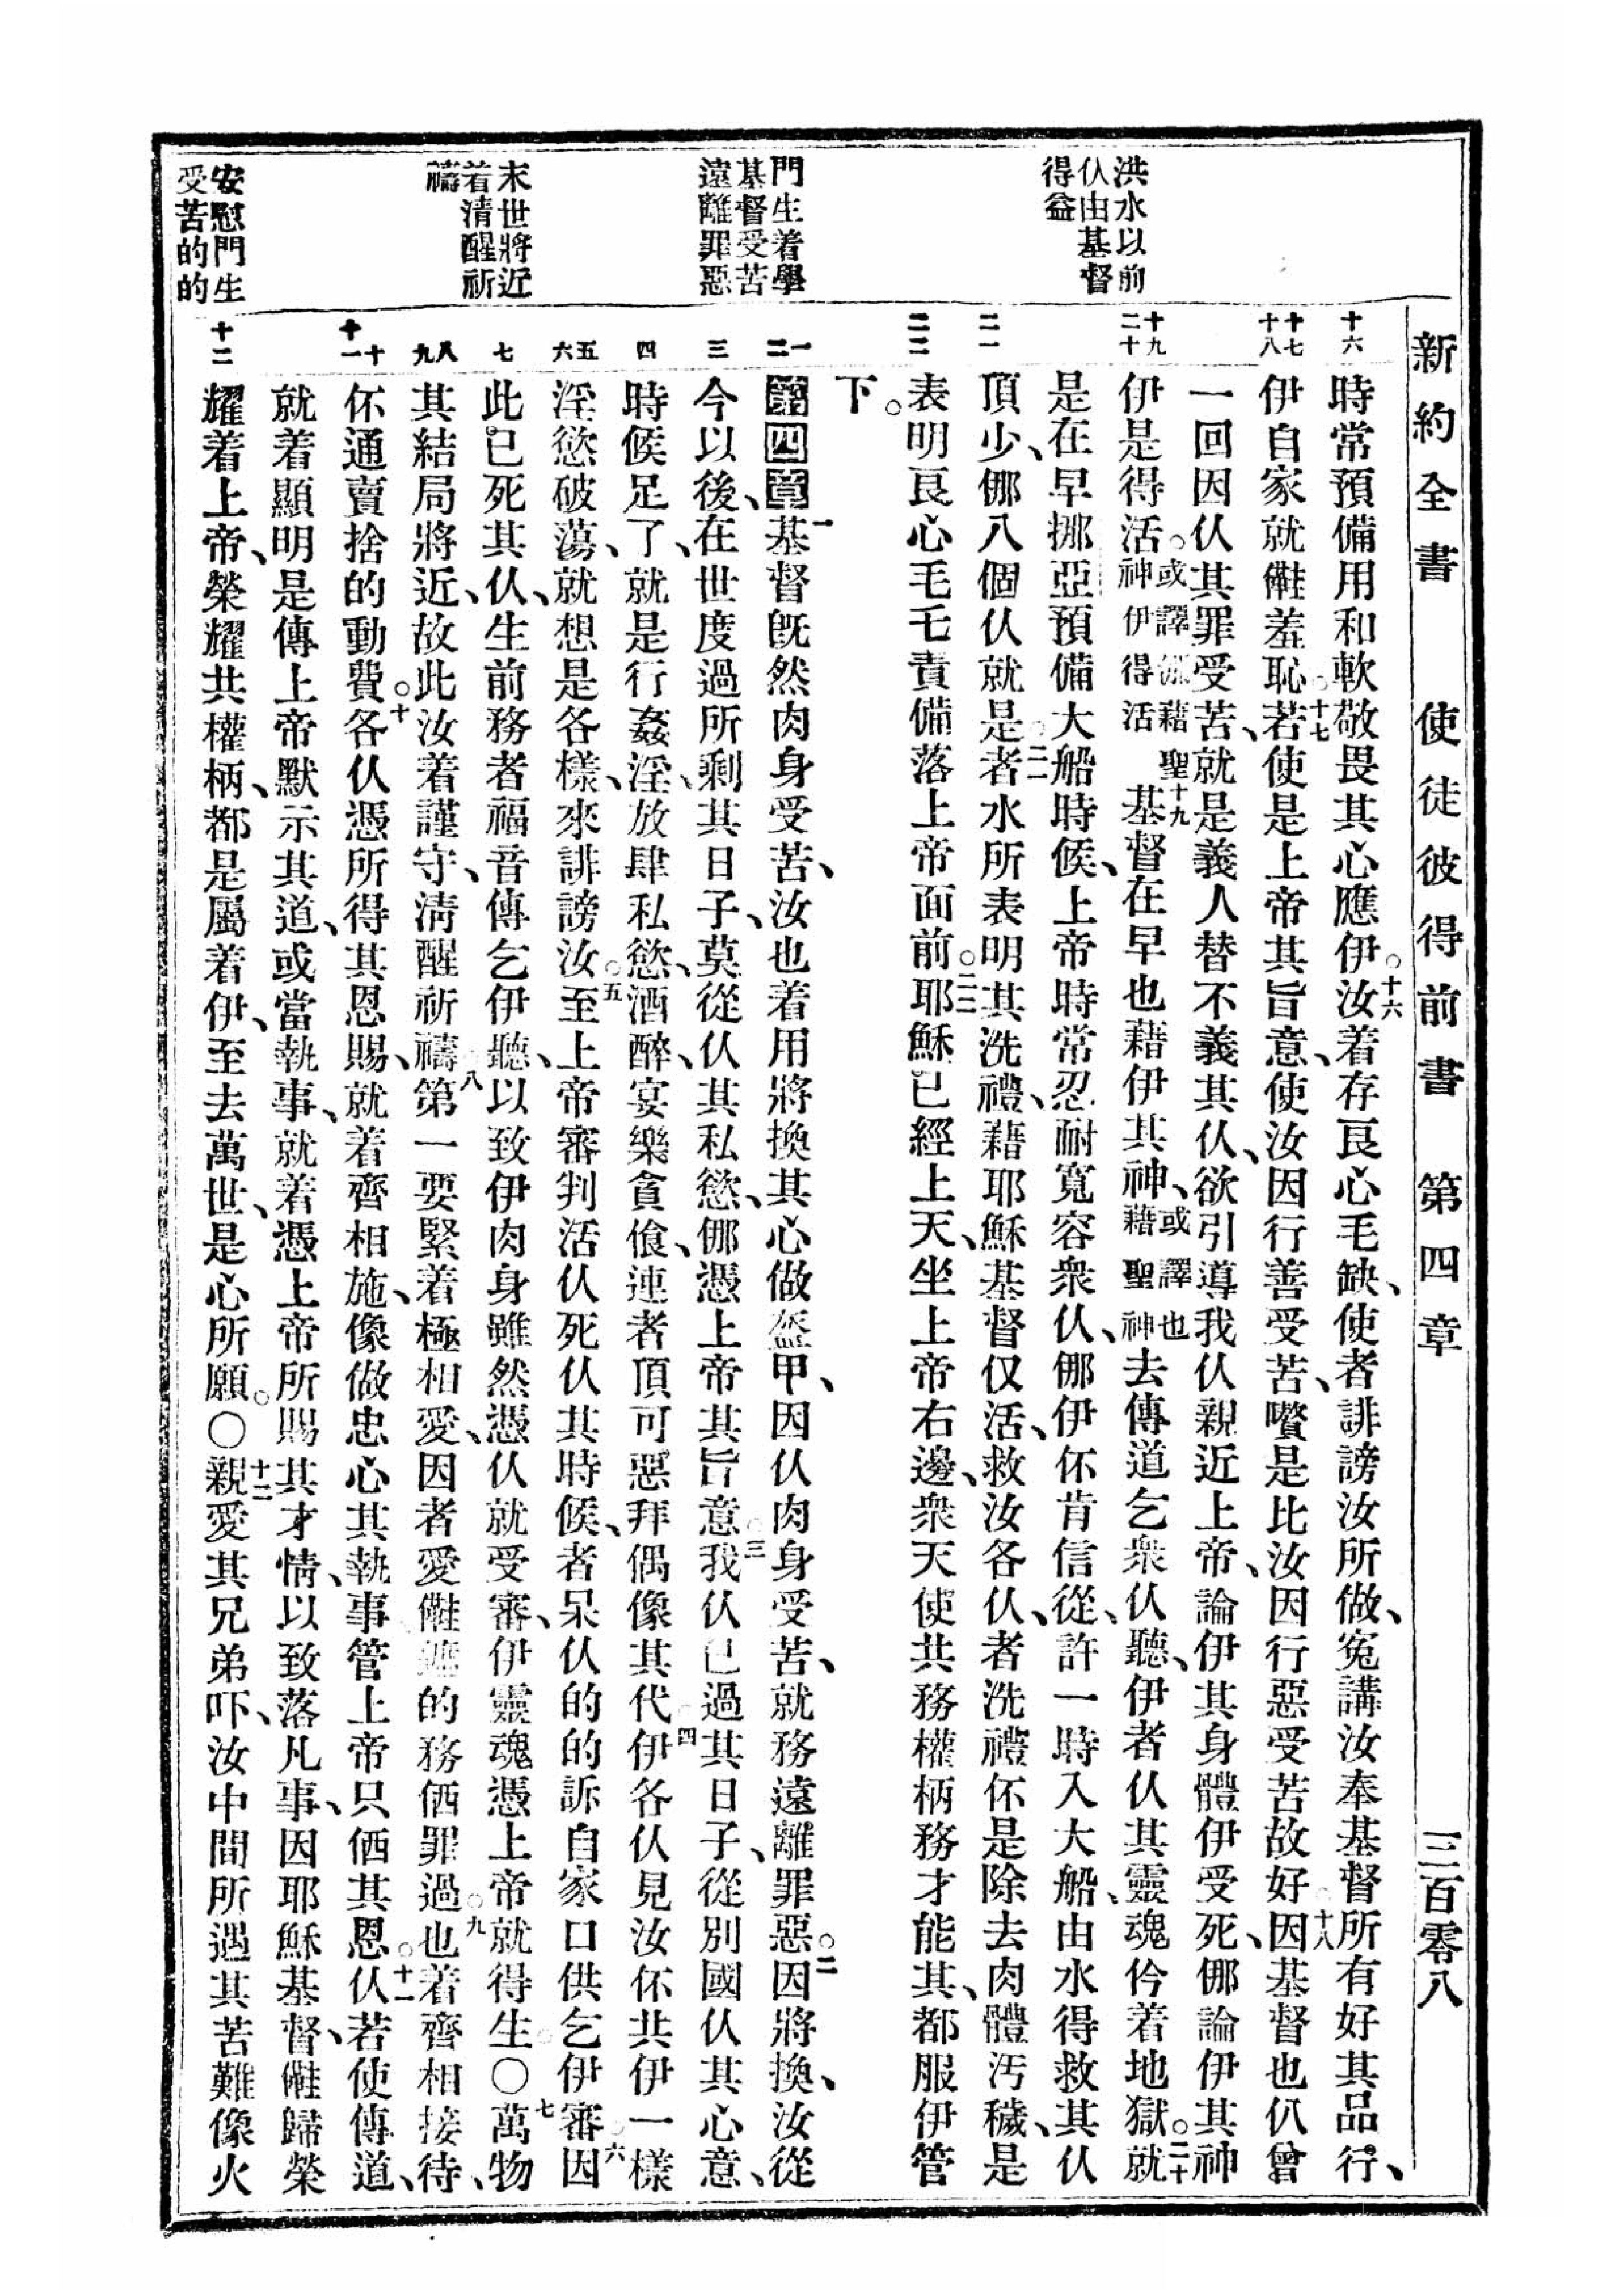 新約全書 使徒彼得前書 第四章 三百零八
洪水以前
仈由基督
得益
門生着學
基督受苦
遠離罪惡
末世將近
着清醒祈
禱
安慰門生
受苦的的
十六
十七
十八
十九
二十
二一
二二
一
二
三
四
五
六
七
八
九
十
十一
十二
時常預備用和軟敬畏其心應伊。十六汝着存良心毛缺、使者誹謗汝所做、冤講汝奉基督所有好其品行、
伊自家就㒕羞恥。十七若使是上帝其旨意、使汝因行善受苦、嚽是比汝因行惡受苦故好。十八因基督也仈曾
一回因仈其罪受苦、就是義人替不義其仈、欲引導我仈親近上帝、論伊其身體伊受死、㑚論伊其神
伊是得活。或譯㑚藉聖神伊得活十九基督在早也藉伊其神、或譯也藉聖神去傳道乞衆仈聽、伊者仈其靈魂仱着地獄。二十就
是在早挪亞預備大船時候、上帝時常忍耐寬容衆仈、㑚伊伓肯信從、許一時入大船、由水得救其仈
頂少、㑚八個仈就是。二一者水所表明其洗禮、藉耶穌基督仅活、救汝各仈、者洗禮伓是除去肉體汚穢、是
表明良心毛乇責備落上帝面前。二二耶穌已經上天、坐上帝右邊、衆天使共務權柄務才能其、都服伊管
下。
第四章一基督旣然肉身受苦、汝也着用將換其心做盔甲、因仈肉身受苦、就務遠離罪惡。二因將換、汝從
今以後、在世度過所剩其日子、莫從仈其私慾、㑚憑上帝其旨意。三我仈已過其日子、從別國仈其心意、
時候足了、就是行姦淫、放肆私慾、酒醉、宴樂、貪飧、連者頂可惡拜偶像其代。四伊各仈見汝伓共伊一樣
淫慾破蕩、就想是各樣、來誹謗汝。五至上帝審判活仈死仈其時候、者呆仈的的訴自家口供乞伊審。六因
此已死其仈、生前務者福音傳乞伊聽、以致伊肉身雖然憑仈就受審、伊靈魂憑上帝就得生。〇七萬物
其結局將近、故此汝着謹守、清醒祈禱。八第一要緊着極相愛、因者愛㒕遮的務価罪過。九也着齊相接待、
伓通賣捨的動費。十各仈憑所得其恩賜、就着齊相施、像做忠心其執事管上帝只価其恩。十一仈若使傳道、
就着顯明是傳上帝默示其道、或當執事、就着憑上帝所賜其才情、以致落凡事、因耶穌基督、㒕歸榮
耀着上帝、榮耀共權柄、都是屬着伊、至去萬世、是心所願。〇十二親愛其兄弟吓、汝中間所遇其苦難像火